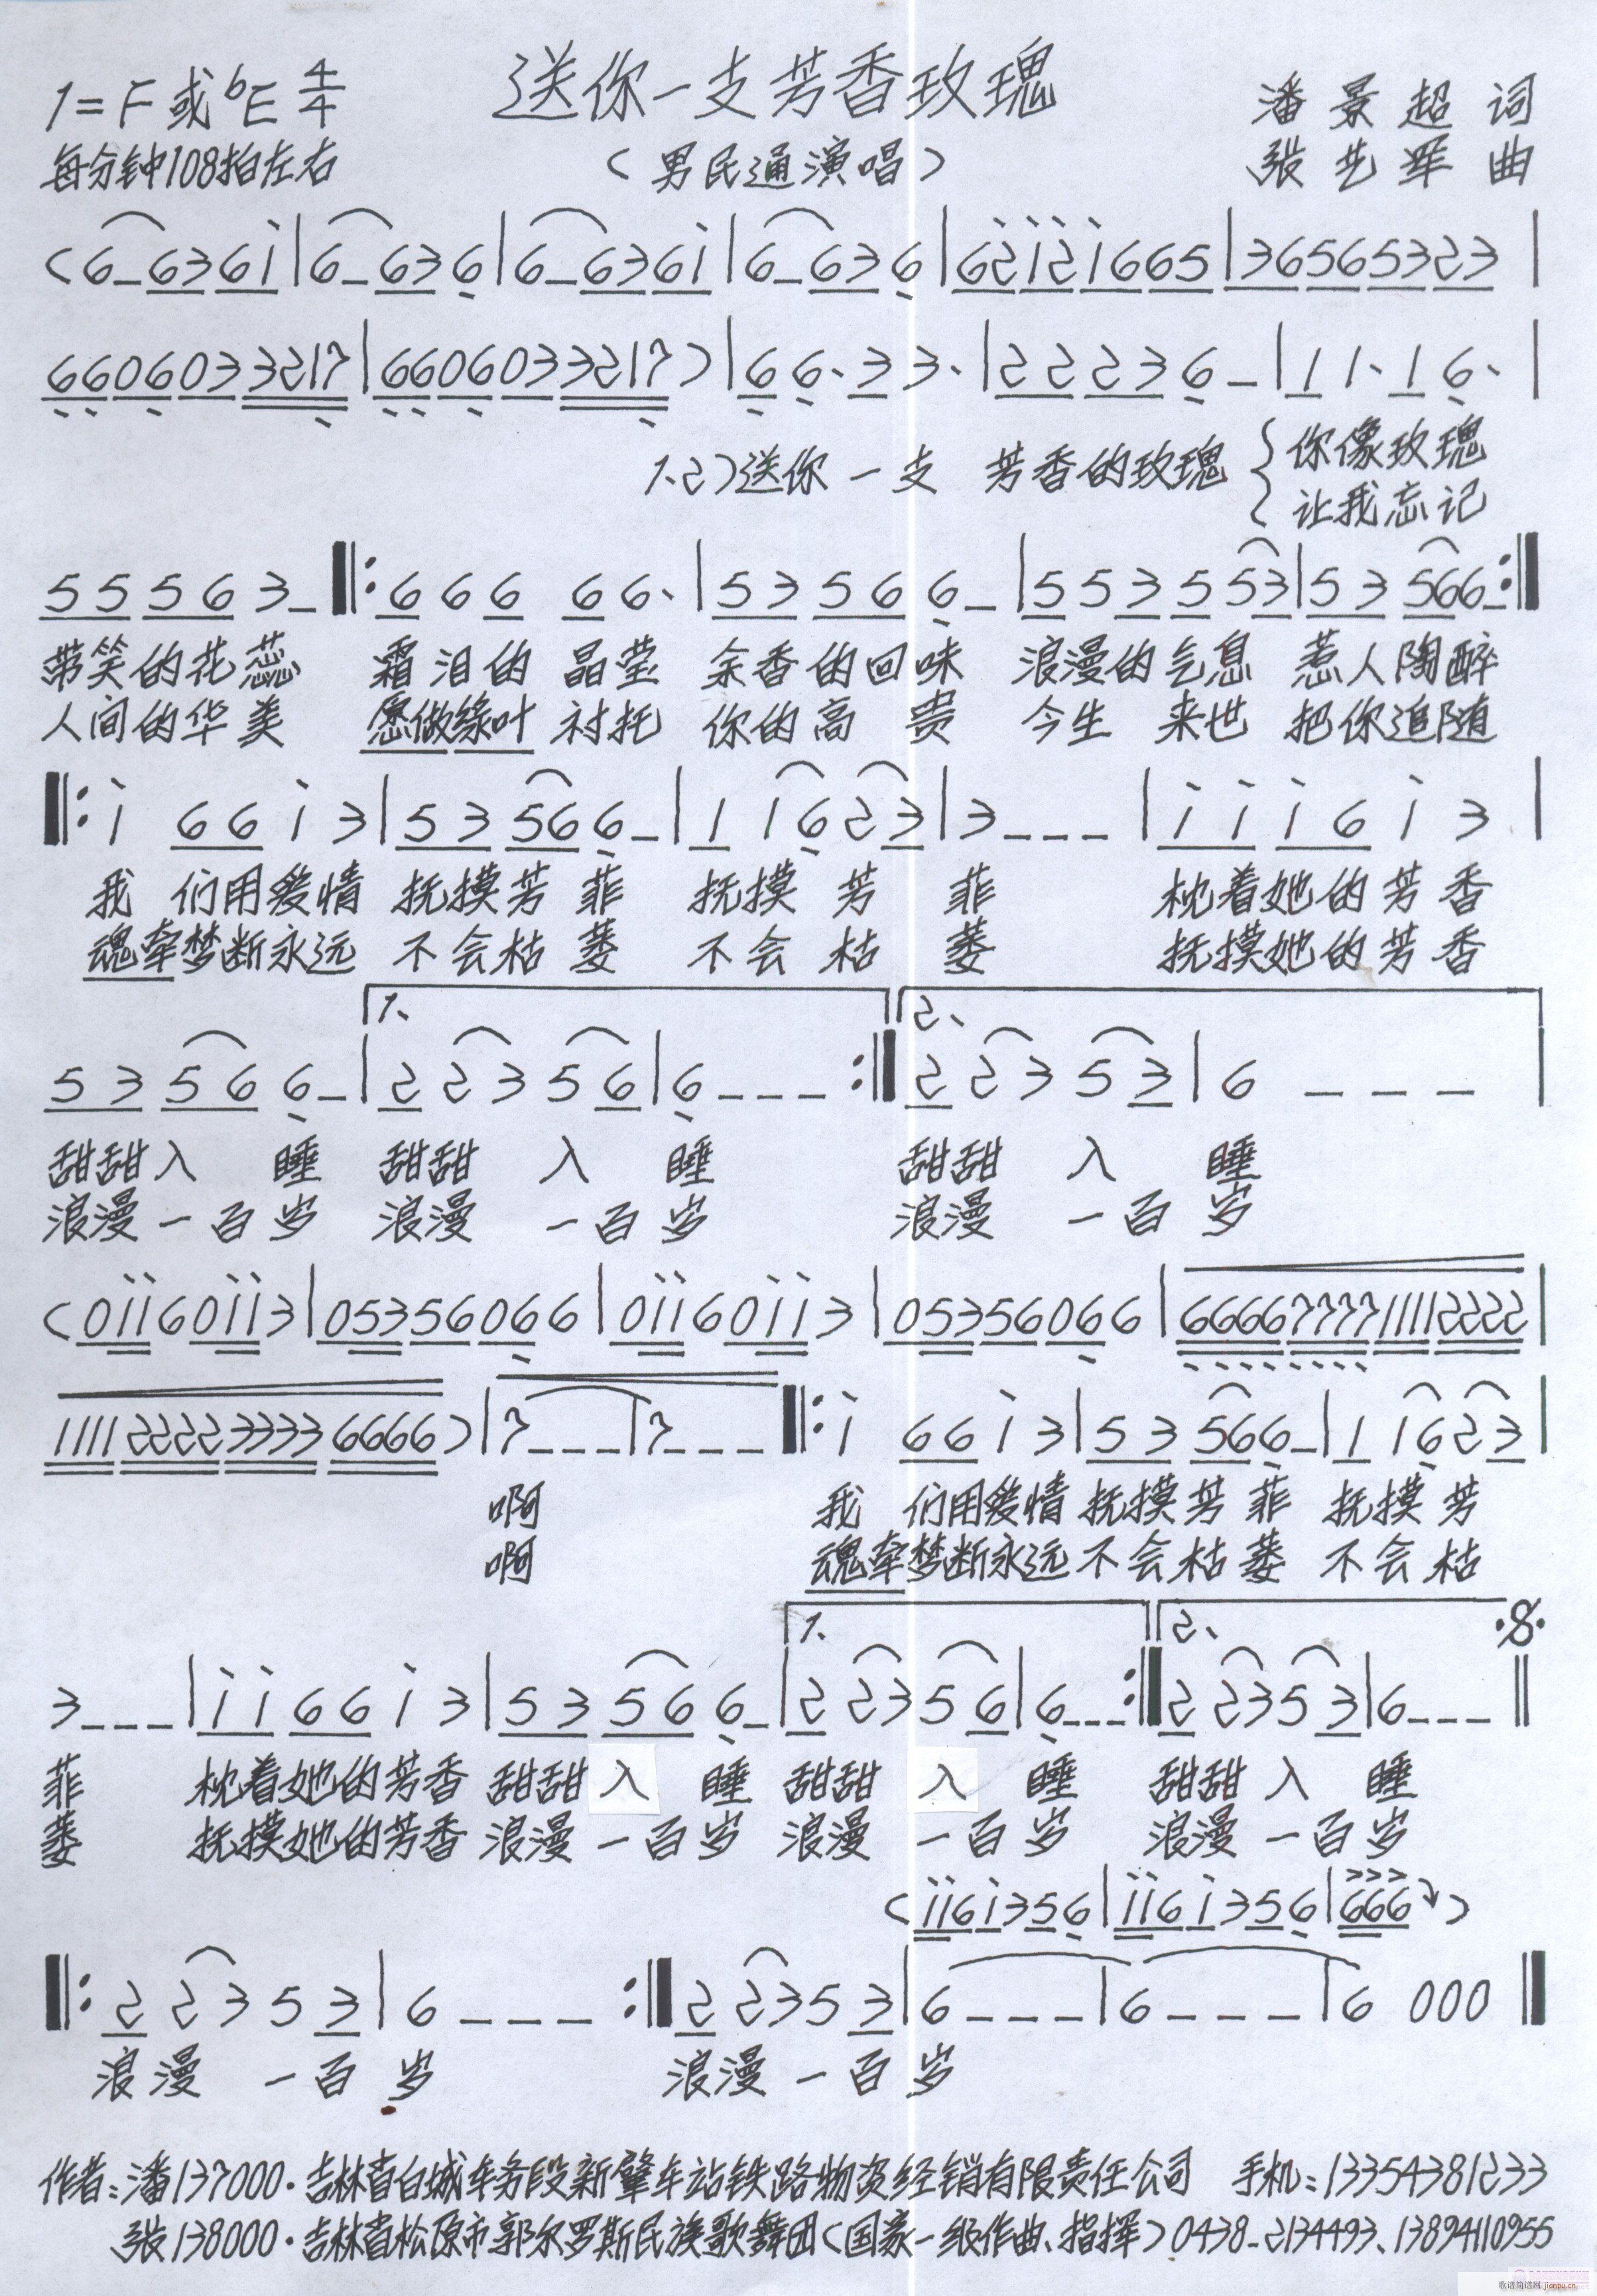 送你一支芳香玫瑰
1=F或bE 4/4
潘景超 词
每分钟108拍左右
(男民通演唱)
张艺军 曲
(6-6361|6-636|6-6361|6-636|62121665|36565323|
6606033217|6606033217)|66、33、|22236-|11、16、|
1、2)送你一支 芳香的玫瑰 {你像玫瑰
让我忘记
55563-‖:66666、|53566-|553553|53566-:‖
带笑的花蕊 霜泪的晶莹 余香的回味 浪漫的气息 惹人陶醉
人间的华美 愿做缘叶衬托 你的高贵 今生来世 把你追随
‖:16613|53566-|11623|3---|111613|
我们用爱情 抚摸芳菲 抚摸芳菲 枕着她的芳香
魂牵梦断永远 不会枯萎 不会枯萎 抚摸她的芳香
1、 2、
53566-|22356|6---:‖22353|6---|
甜甜入睡 甜甜入睡 甜甜入睡
浪漫一百岁 浪漫一百岁 浪漫一百岁
(01160113|05356066|01160113|05356066|6666777711112222|
1111222233336666)|7---|7---‖:16613|53566-|11623|
啊 我们用爱情 抚摸芳菲 抚摸芳
啊 魂牵梦断永远 不会枯萎 不会枯
1、 2、
3---|116613|53566-|22356|6---:‖22353|6---‖
菲 枕着她的芳香 甜甜入睡 甜甜入睡 甜甜入睡
萎 抚摸她的芳香 浪漫一百岁 浪漫一百岁 浪漫一百岁
(1161356|1161356|666)
‖:22353|6---:‖22353|6---|6---|6000‖
浪漫一百岁 浪漫一百岁
作者:潘137000·吉林省白城车务段新肇车站铁路物资经销有限责任公司 手机:13354381233
张138000·吉林省松原市郭尔罗斯民族歌舞团(国家一级作曲、指挥)0438-2134493、13894110955
歌谱简谱网 jianpu.cn